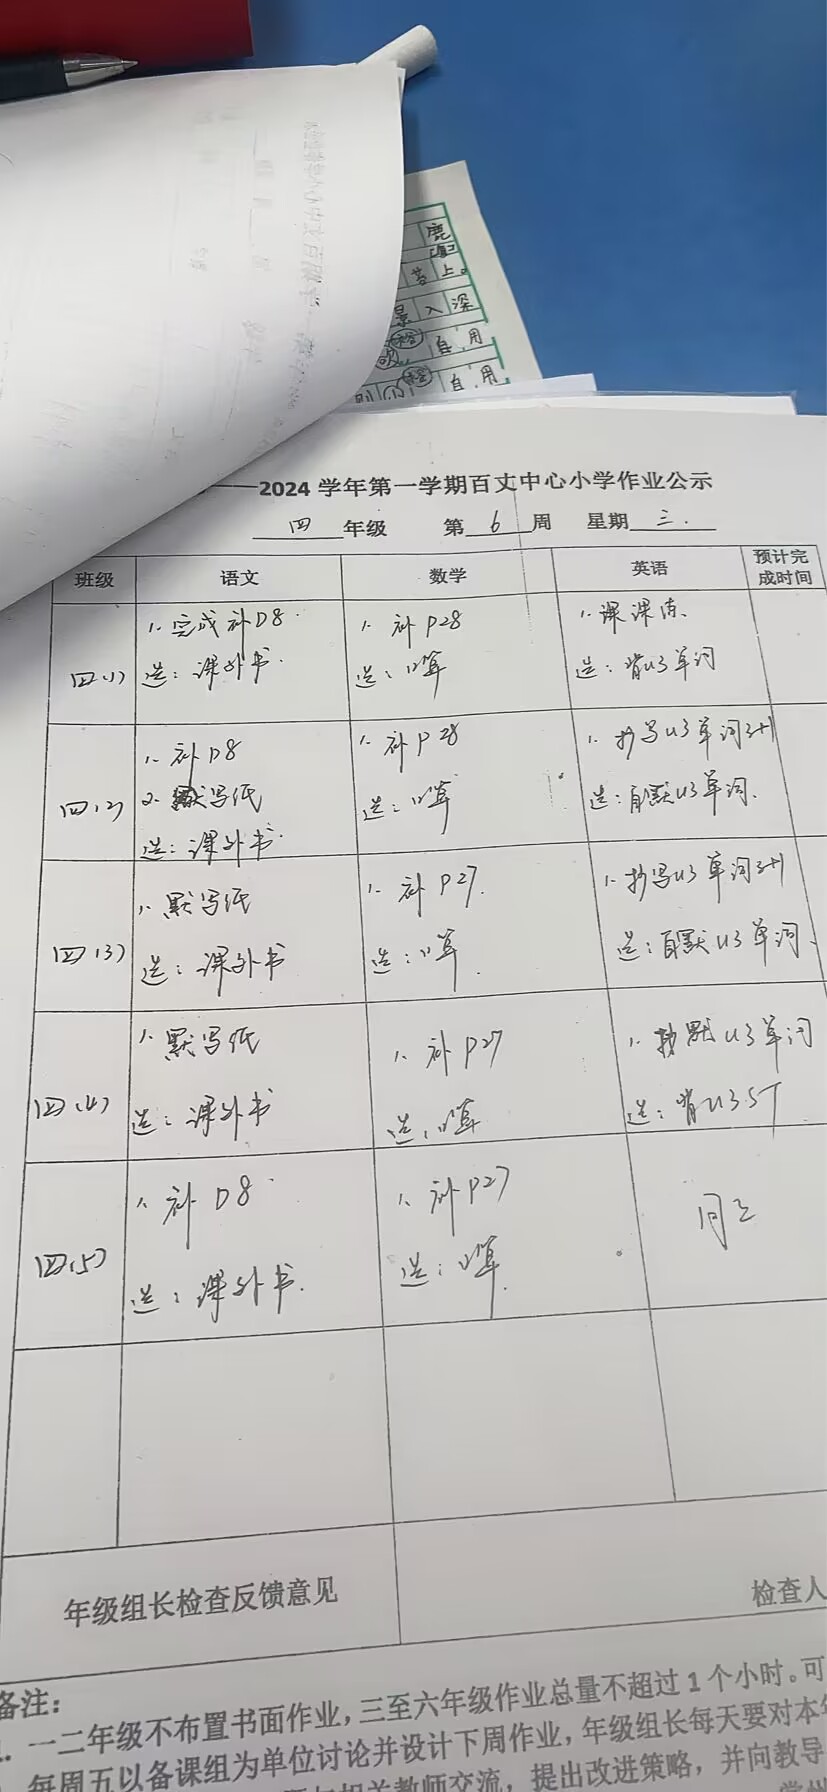 鹿
苔上。
景入深
自用
自用
——2024学年第一学期百丈中心小学作业公示
四年级 第6周 星期三.
班级 语文 数学 英语 预计完成时间
四(1)
1. 完成补D8.
选: 课外书.
1. 补P28
选: 口算
1. 课课练.
选: 背U3单词
四(2)
1. 补D8
2. 默写纸
选: 课外书.
1. 补P28
选: 口算
1. 抄写U3单词3+1
选: 自默U3单词.
四(3)
1. 默写纸
选: 课外书
1. 补P27.
选: 口算.
1. 抄写U3单词3+1
选: 自默U3单词.
四(4)
1. 默写纸
选: 课外书
1. 补P27
选: 口算
1. 默U3单词
选: 背U3.ST
四(5)
1. 补D8.
选: 课外书.
1. 补P27
选: 口算.
同上
年级组长检查反馈意见
检查人
备注:
1. 一二年级不布置书面作业,三至六年级作业总量不超过1个小时。可
每周五以备课组为单位讨论并设计下周作业,年级组长每天要对本年
相关教师交流,提出改进策略,并向教导